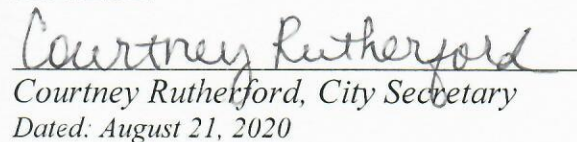 Courtney Rutherford
Courtney Rutherford, City Secretary
Dated: August 21, 2020